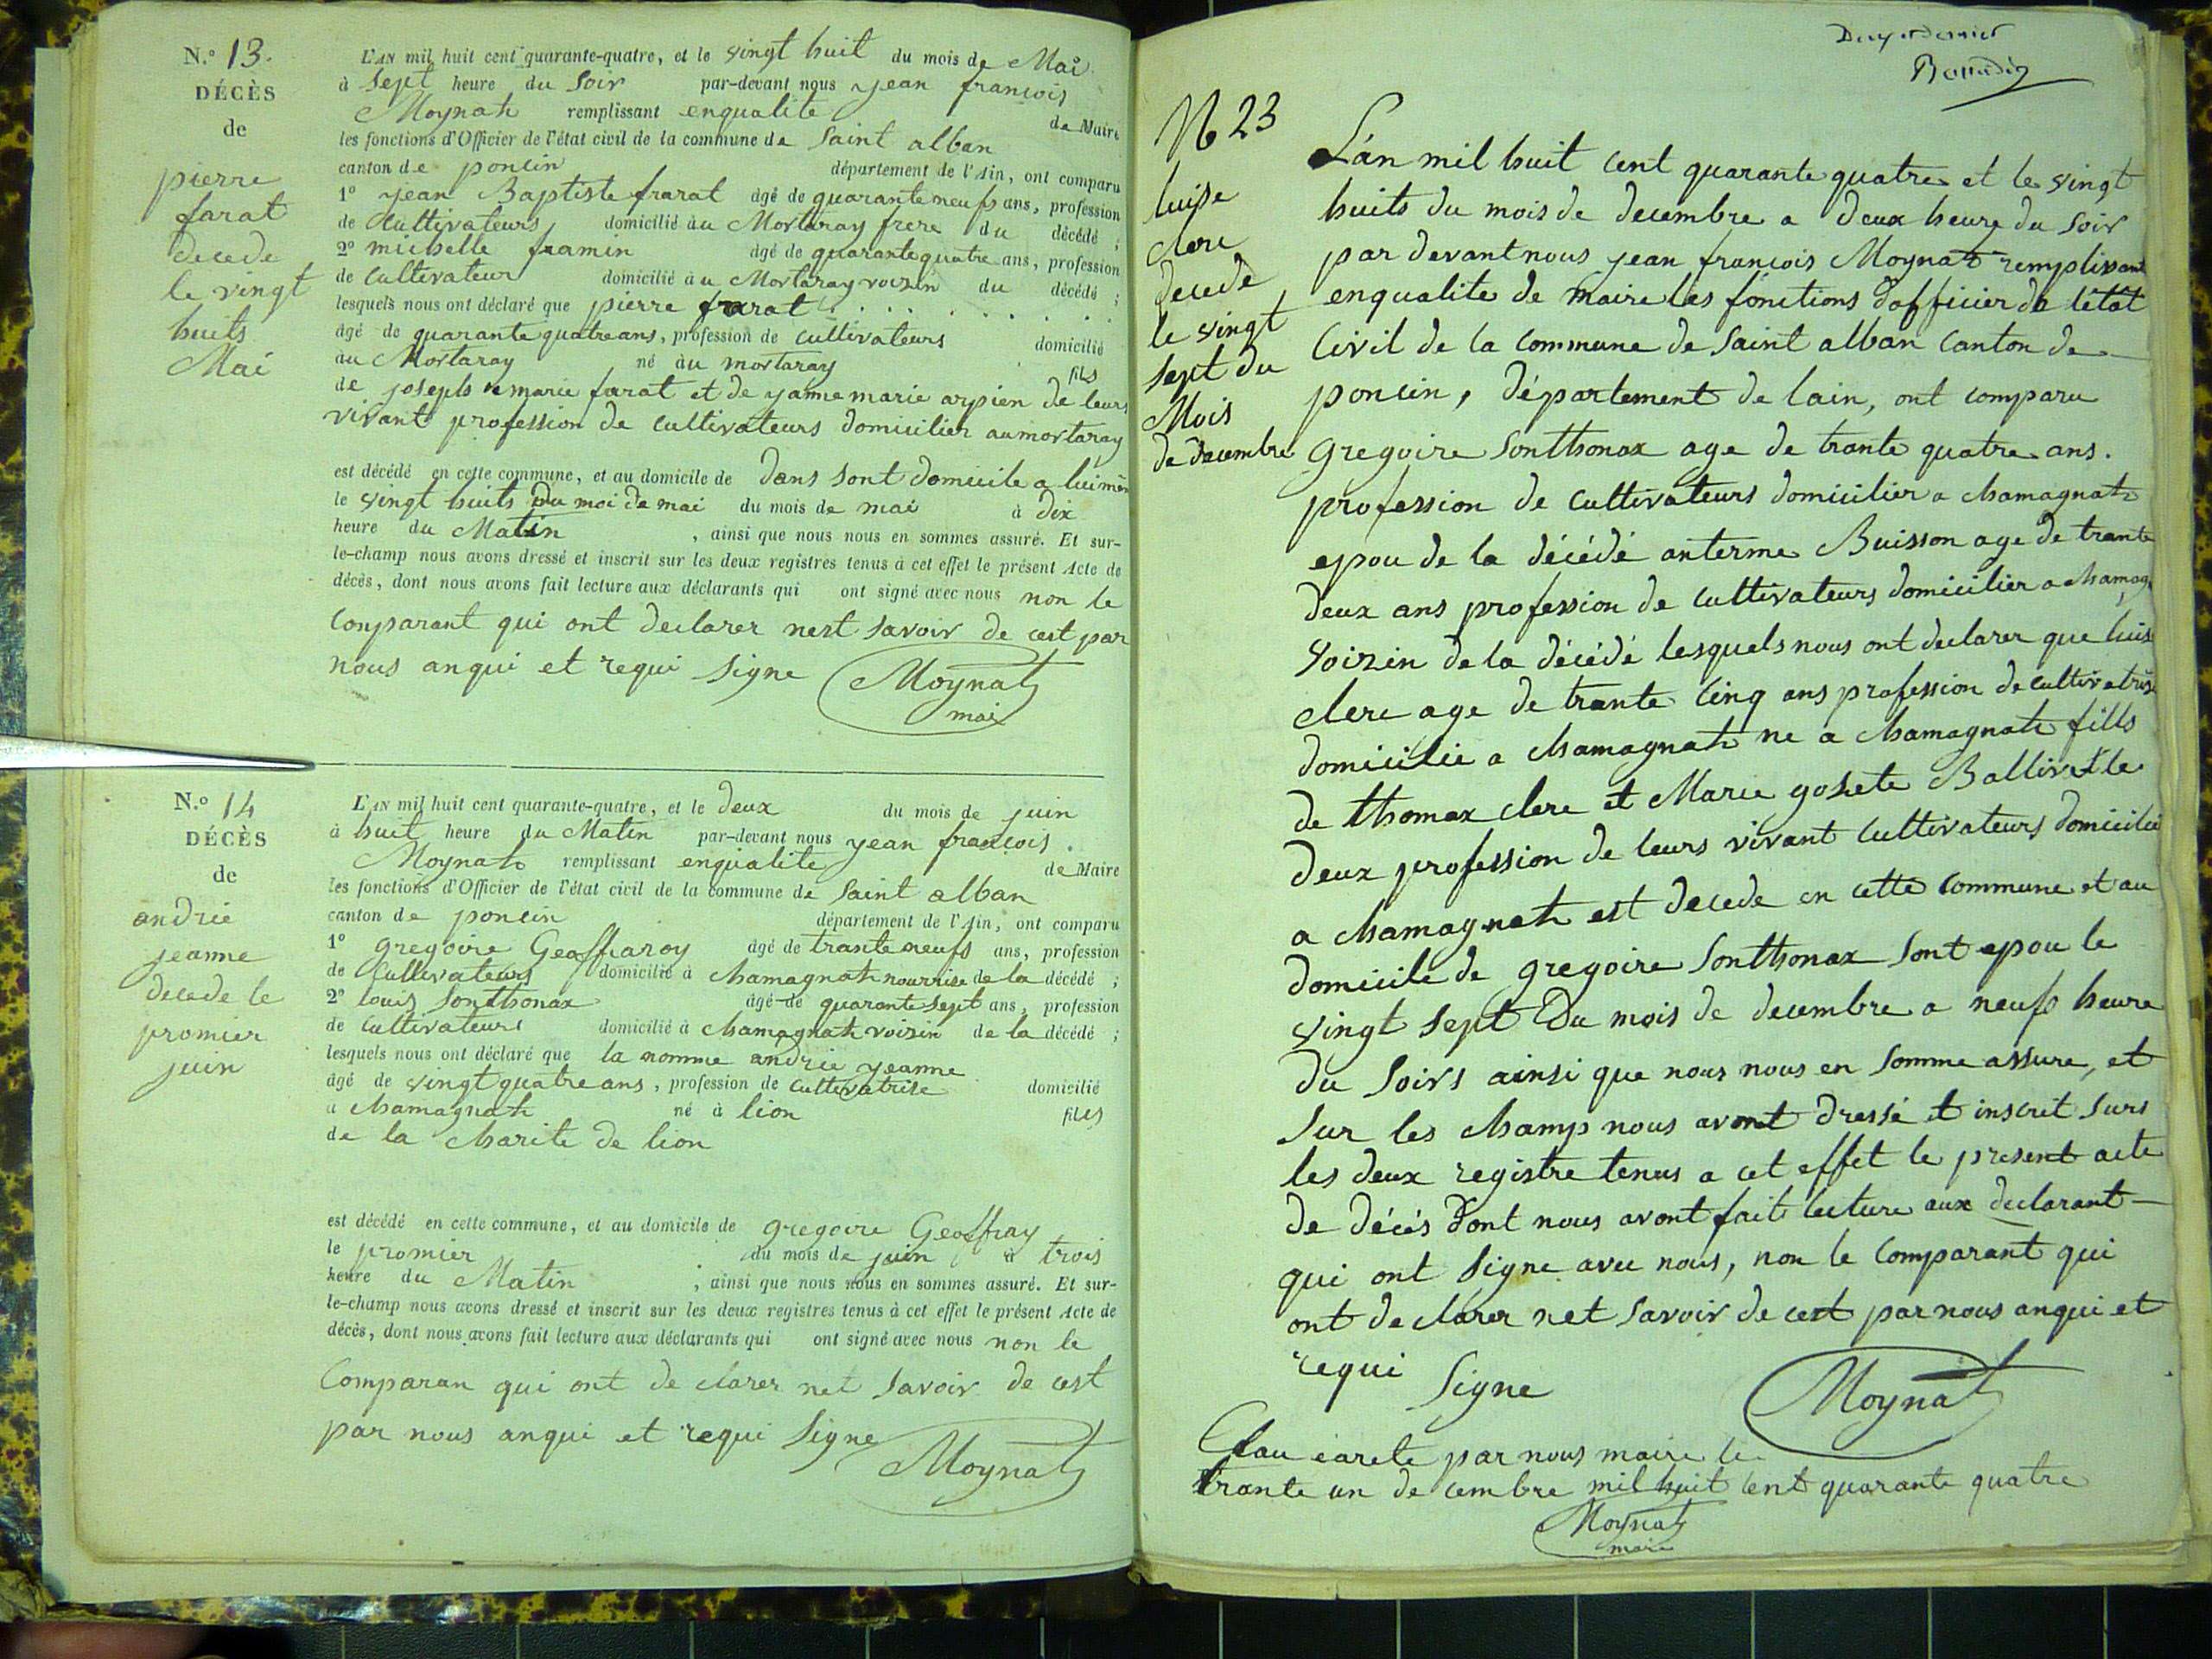 N.° 13.
DÉCÈS
de
pierre
farat
decede
le vingt
huits
Mai
L'AN mil huit cent quarante-quatre, et le vingt huit du mois de Mai
à sept heure du soir par-devant nous jean francois
Moynat remplissant enqualite de Maire
les fonctions d'Officier de l'état civil de la commune de saint alban
canton de poncin département de l'Ain, ont comparu
1° jean Baptiste frarat âgé de quarante neufs ans, profession
de Cultivateurs domicilié au Mortaray frere du décédé ;
2° michelle framin âgé de quarante quatre ans, profession
de cultivateur domicilié au Mortaray voizin du décédé ;
lesquels nous ont déclaré que pierre farat
âgé de quarante quatre ans, profession de cultivateurs domicilié
au Mortaray né au mortaray fils
de joseph marie farat et de janne marie arpien de leurs
vivant profession de cultivateurs domicilier au mortaray
est décédé en cette commune, et au domicile de dans sont domicile a lui mên
le vingt huits du moi de mai du mois de mai à dix
heure du Matin , ainsi que nous nous en sommes assuré. Et sur-
le-champ nous avons dressé et inscrit sur les deux registres tenus à cet effet le présent Acte de
décès, dont nous avons fait lecture aux déclarants qui ont signé avec nous non le
Conparant qui ont declarer nest savoir de cest par
nous anqui et requi signe Moynat
mai
N.° 14
DÉCÈS
de
andrie
jeanne
decede le
promier
juin
L'AN mil huit cent quarante-quatre, et le deux du mois de juin
à huit heure du Matin par-devant nous jean francois
Moynat remplissant enqualite de Maire
les fonctions d'Officier de l'état civil de la commune de saint alban
canton de poncin département de l'Ain, ont comparu
1° gregoire Geoffraroy âgé de trante neufs ans, profession
de Cultivateurs domicilié à chamagnat nourrise de la décédé ;
2° louis Sonthonax âgé de quarante sept ans, profession
de cultivateurs domicilié à chamagnat voizin de la décédé ;
lesquels nous ont déclaré que la nomme andrie jeanne
âgé de vingt quatre ans, profession de cultivatrise domicilié
a chamagnat né à lion filles
de la charite de lion
est décédé en cette commune, et au domicile de gregoire Geoffray
le promier du mois de juin à trois
heure du Matin ; ainsi que nous nous en sommes assuré. Et sur-
le-champ nous avons dressé et inscrit sur les deux registres tenus à cet effet le présent Acte de
décès, dont nous avons fait lecture aux déclarants qui ont signé avec nous non le
Comparan qui ont de clarer net savoir de cest
par nous anqui et requi signe Moynat
N 23
luise
clere
decede
le vingt
sept du
Mois
de decembre
L'an mil huit cent quarante quatre et le vingt
huits du mois de decembre a deux heure du soir
par devant nous jean francois Moynat remplissant
enqualite de maire les fonctions d'officier de l'état
Civil de la commune de saint alban canton de
poncin, département de lain, ont comparu
gregoire Sonthonax age de trante quatre ans.
profession de cultivateurs domicilier a chamagnat
epou de la décédé anterme Buisson age de trante
deux ans profession de cultivateurs domicilier a chamag
voizin de la décédé lesquels nous ont declarer que luise
clere age de trante cinq ans profession de cultivatrise
domicilie a chamagnat ne a chamagnat fills
de thomax clere et Marie goshete Ballivetle
deux profession de leurs vivant cultivateurs domicilie
a chamagnat est decede en cette commune et au
domicile de gregoire Sonthonax sont epou le
vingt sept du mois de decembre a neufs heure
du soirs ainsi que nous nous en somme assure, et
sur les champ nous avont dressé et inscrit surs
les deux registre tenus a cet effet le present acte
de décés dont nous avont fait lecture aux declarant
qui ont signe avec nous, non le comparant qui
ont de clarer net savoir de cest par nous anqui et
requi signe Moynat
Clau earete par nous maire le
trante un de cembre mil huit cent quarante quatre
Moynat
maire